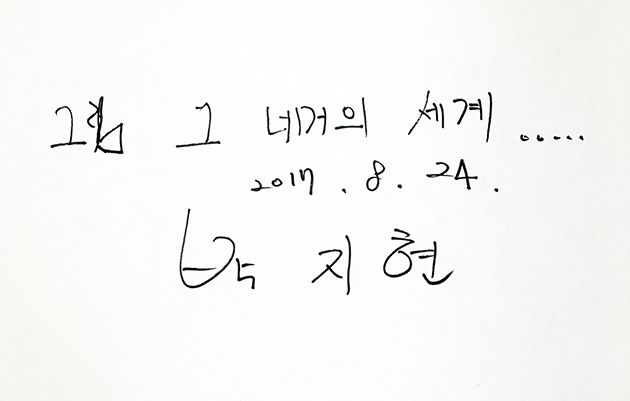 그림 그 네거의 세계 .....
2017. 8. 24.
박지현